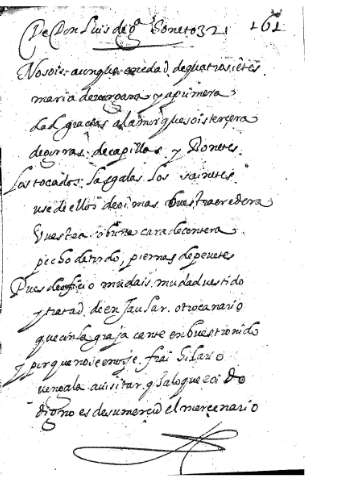 De Don Luis de gª Soneto 321 161
No sois aunque en edad de quatro sietes
maria de y a primera
dad gracias al amor que sois tercera
de gorras de capillas y Bonetes
Los tocados las galas los sainetes
use de ellos de oi mas vuestra eredera
Vuestra cara de contera
pecho de tordo, piernas de peuetes
Pues de oficio mudais mudad vestido
y tratad de enJaular otro canario
que con la graja cante en vuestro nido
Y porque no se enoje frai Hilario
vengala a visitar q a lo que e oido
digno es de su merçed el mercenario